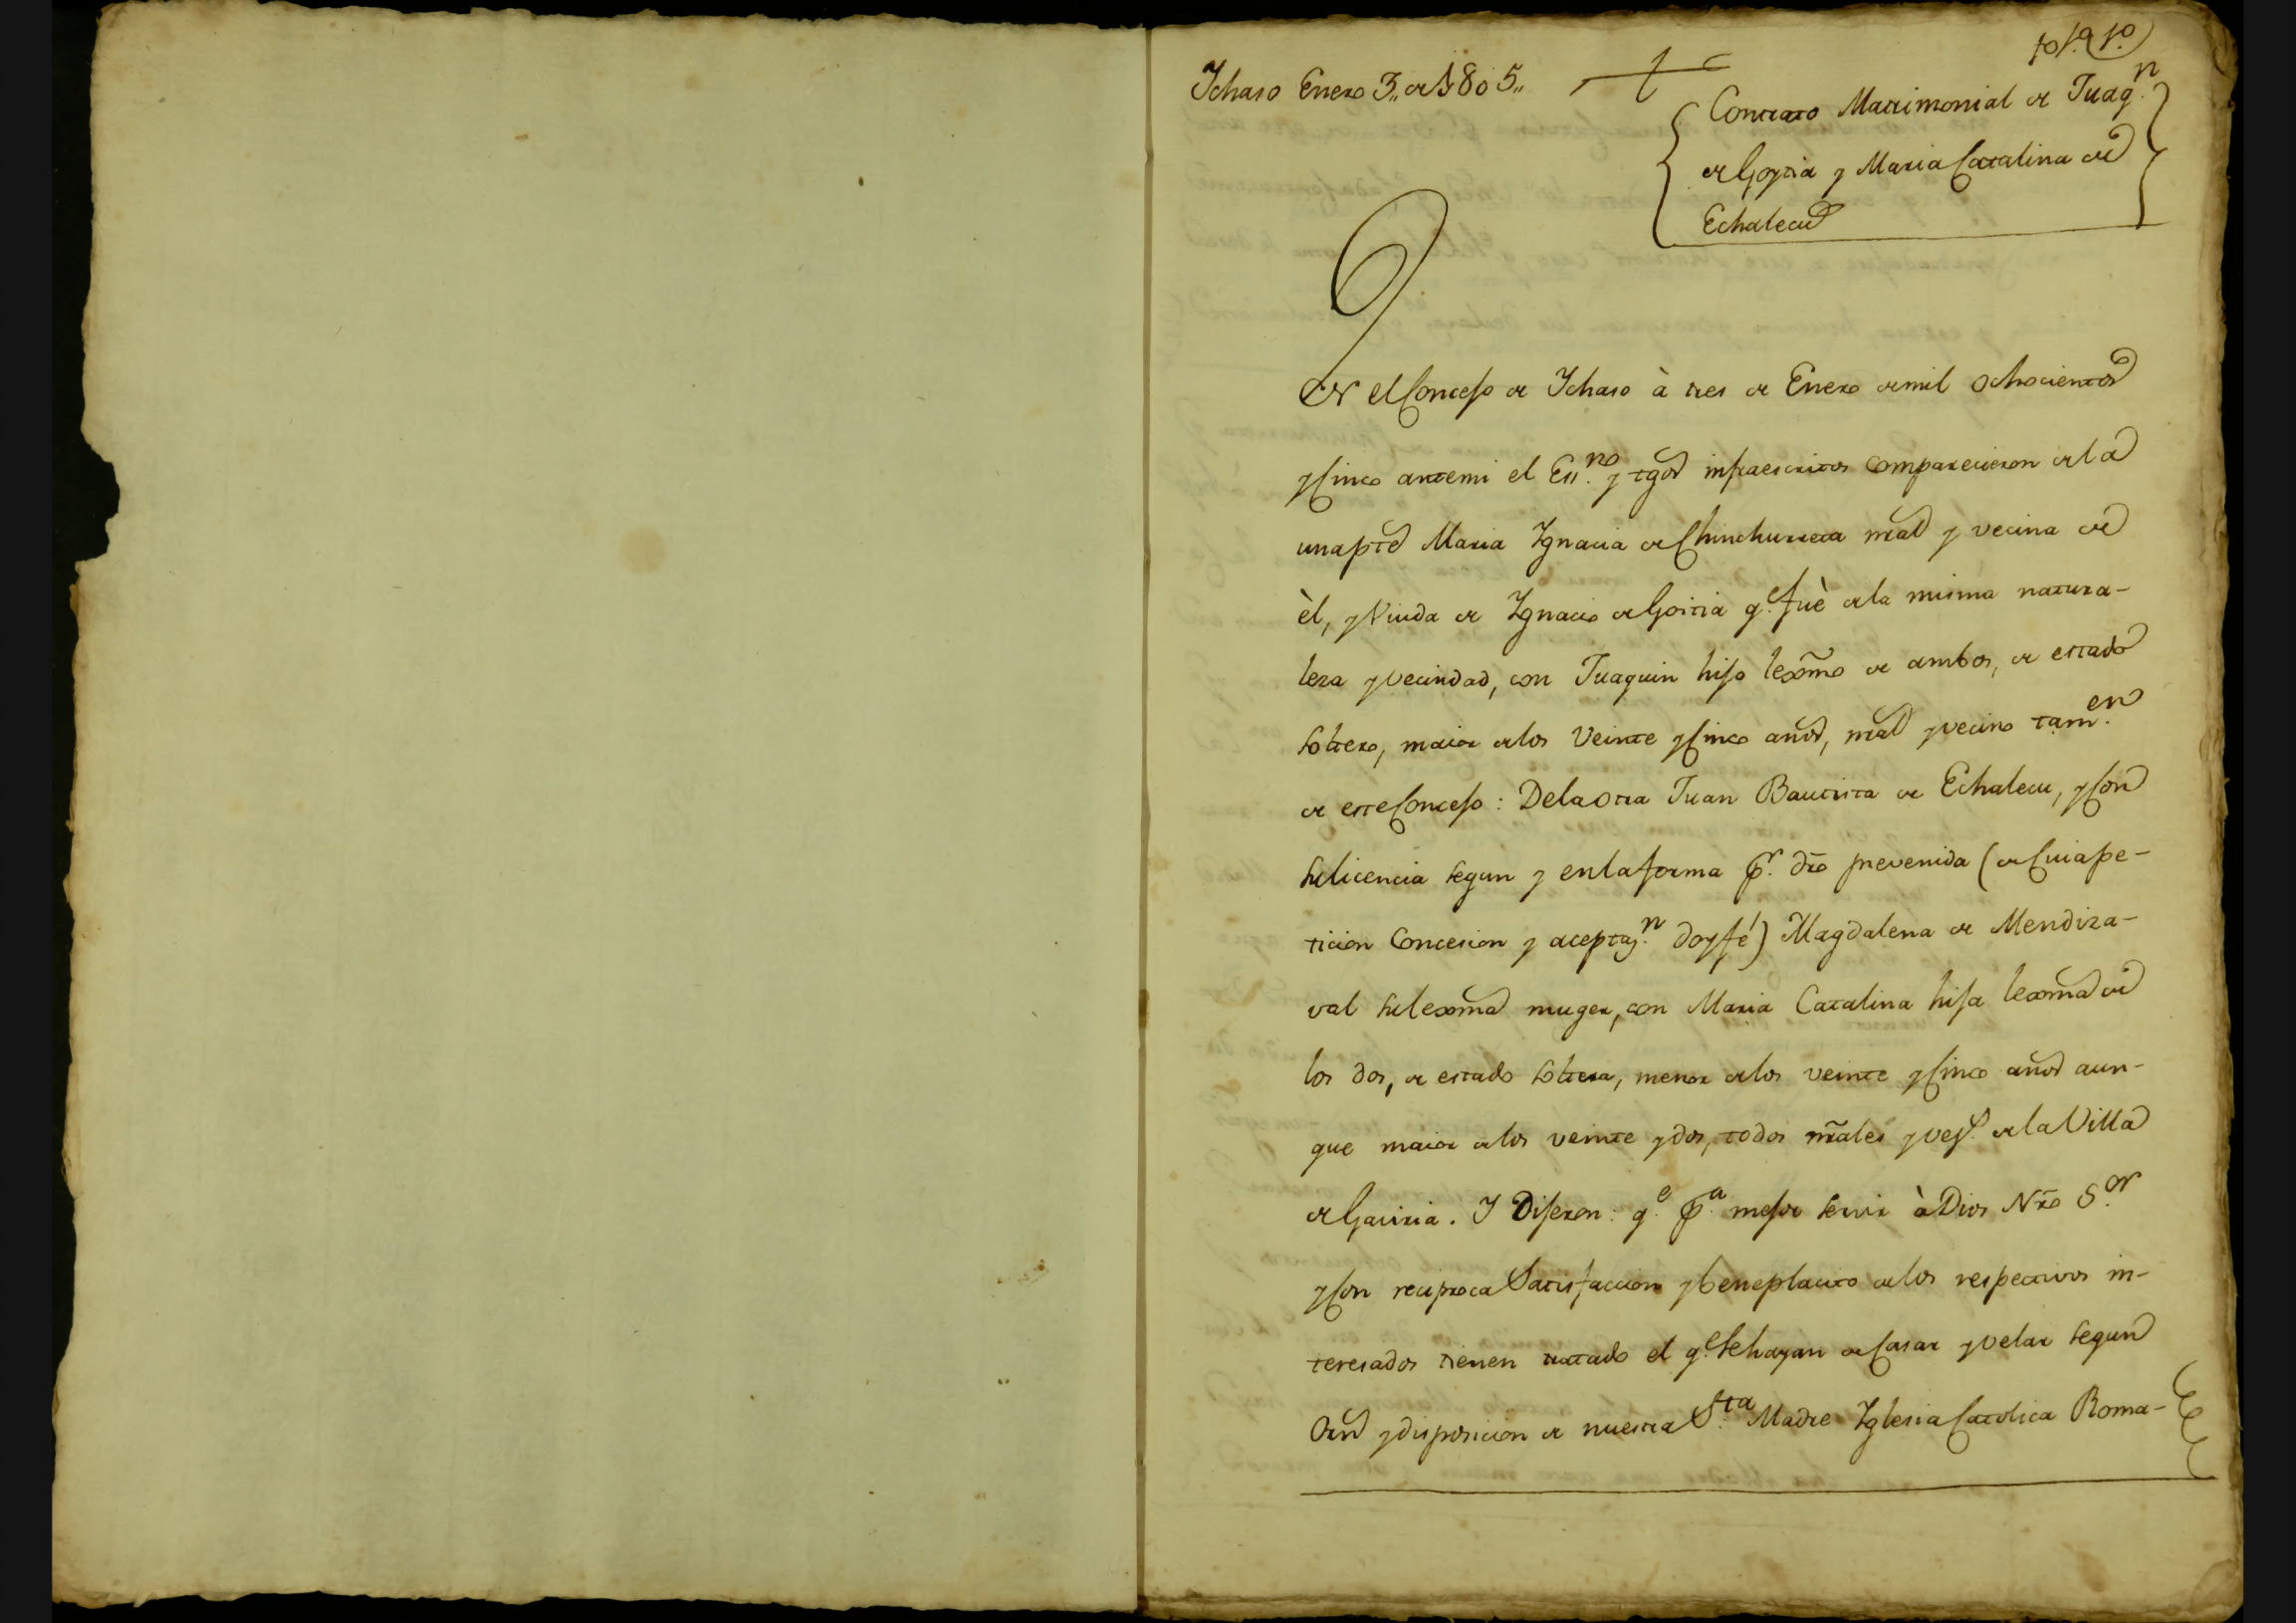 Ychaso Enero 3,, de 1805,,
Contrato Matrimonial de Juaq.n
de Goytia y Maria Catalina de
Echalecu
En el Concejo de Ychaso à tres de Enero de mil ochocientos
y Cinco ante mi el Ess.no y tgos infraescritos comparecieron de la
una pte Maria Ygnacia de Chinchurreta nral y vecina de
èl, y Viuda de Ygnacio de Goitia q.e fuè de la misma natura-
leza y vecindad, con Juaquin hijo lexmo de ambos, de estado
Soltero, maior de los Veinte y Cinco años, nral y vecino tam.en
de este Concejo: De la otra Juan Bautista de Echalecu, y Con
su licencia segun y en la forma p.r dro prevenida (de Cuia pe-
ticion Concesion y aceptaz.n doy fé) Magdalena de Mendiza-
val su lexma muger, con Maria Catalina hija lexma de
los dos, de estado Soltera, menor de los veinte y Cinco años aun-
que maior de los veinte y dos, todos nrales y vez.s de la Villa
de Gaviria. Y Dijeron: q.e p.a mejor servir à Dios Nro S.or
y Con reciproca Satisfaccion y beneplacito de los respectivos in-
teresados tienen tratado el q.e se hayan de Casar y velar segun
Orn y disposicion de nuestra S.ta Madre Yglesia Catolica Roma-